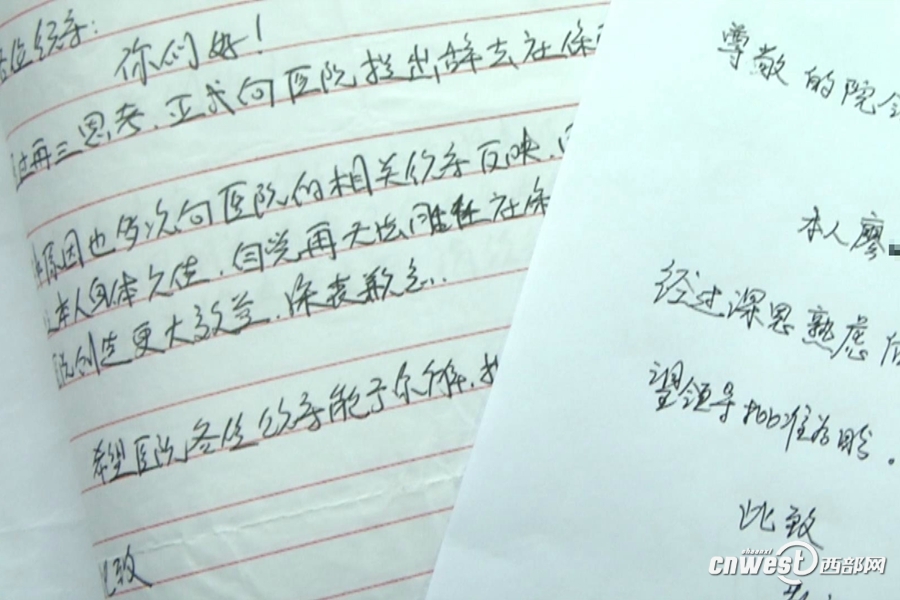 各位领导：
你们好！
过再三思考，正式向医院提出辞去在保
原因也多次向医院的相关领导反映，
本人身体欠佳，自觉再无法胜任在保
院创造更大效益，深表歉意..
希望医院各位领导能予尔解，
致
尊敬的院
本人廖
经过深思熟虑后
望领导批准为盼。
此致
shaanxi
cnwest西部网